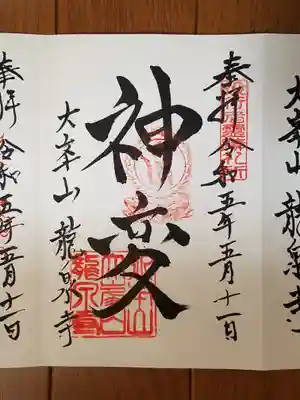 大峯山 龍泉寺
奉拝 令和五年五月十一日
神変
大峯山 龍泉寺
奉拝 令和五年五月十一日